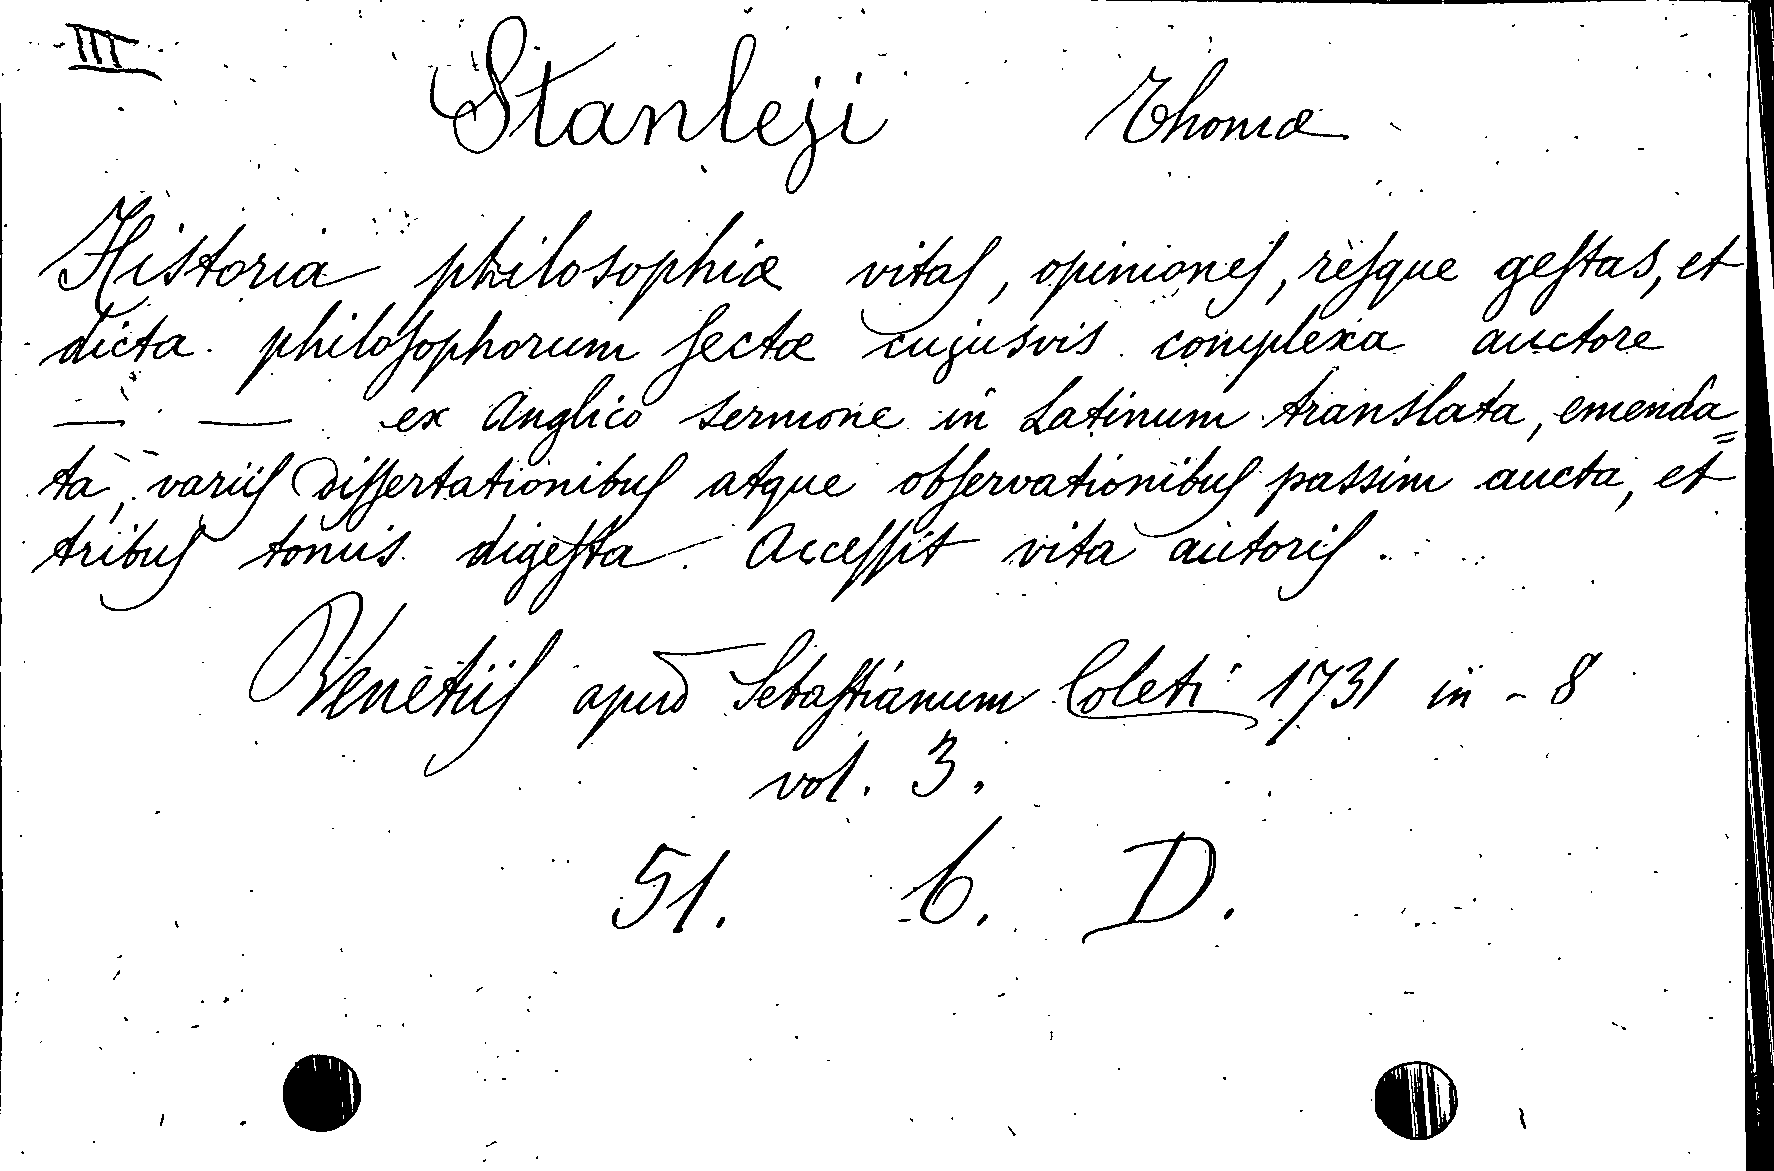 III
Stanleji Thomæ
Historia philosophiæ vitas, opiniones, resque gestas, et
dicta philosophorum sectæ cujusvis complexa auctore
— — ex Anglico sermone in Latinum translata, emenda=
ta, variis dissertationibus atque observationibus passim aucta, et
tribus tomis digesta. Accessit vita autoris.
Venetiis apud Sebastianum Coleti 1731 in - 8
vol. 3.
51. 6. D.